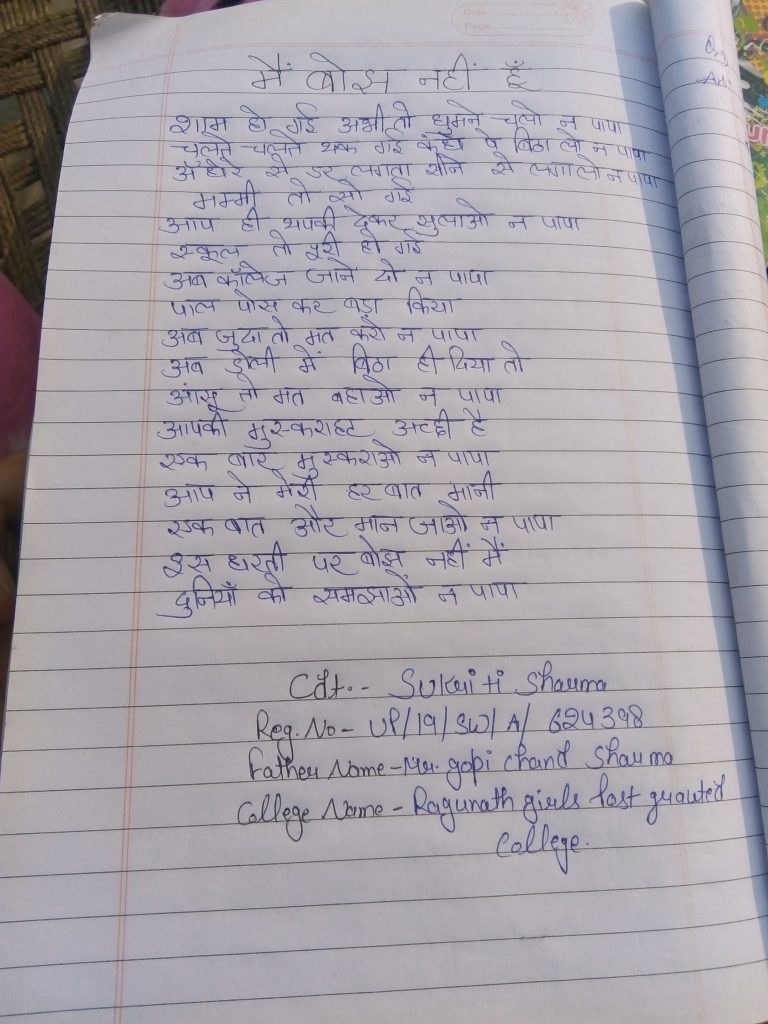 Date
Page
मैं बोझ नहीं हूँ
शाम हो गई अभी तो घुमने चलो न पापा
चलते चलते थक गई कंधे पे बिठा लो न पापा
अँधेरे से डर लगता सीने से लगालो न पापा
मम्मी तो सो गई
आप ही थपकी देकर सुलाओ न पापा
स्कूल तो पूरी हो गई
अब कॉलेज जाने दो न पापा
पाल पोस कर बड़ा किया
अब जुदा तो मत करो न पापा
अब डोली में बिठा ही दिया तो
आंसू तो मत बहाओ न पापा
आपकी मुस्कराहट अच्छी है
एक बार मुस्कराओ न पापा
आप ने मेरी हर बात मानी
एक बात और मान जाओ न पापा
इस धरती पर बोझ नहीं मैं
दुनियाँ को समझाओ न पापा
Cdt. - Sukriti Sharma
Reg. No - UP/19/SW/A/ 624398
Father Name - Mr. gopi chand Sharma
College Name - Ragunath girls Post granted
College.